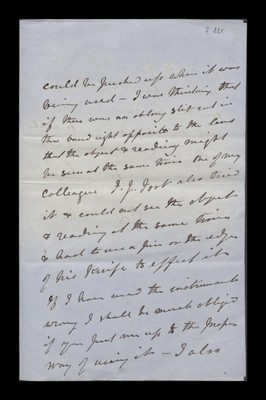 could be pushed up when it was
being used – I was thinking that
if there was an oblong slit cut in
the band right opposite to the lens
that the object & reading might
be seen at the same time one of my
colleagues T. J. Jost also tried
it & could not see the object
& reading at the same time
& had to use a pin on the edge
of his knife to effect it
If I have used the instrument
wrong I shall be much obliged
if you put me up to the proper
way of using it – I also